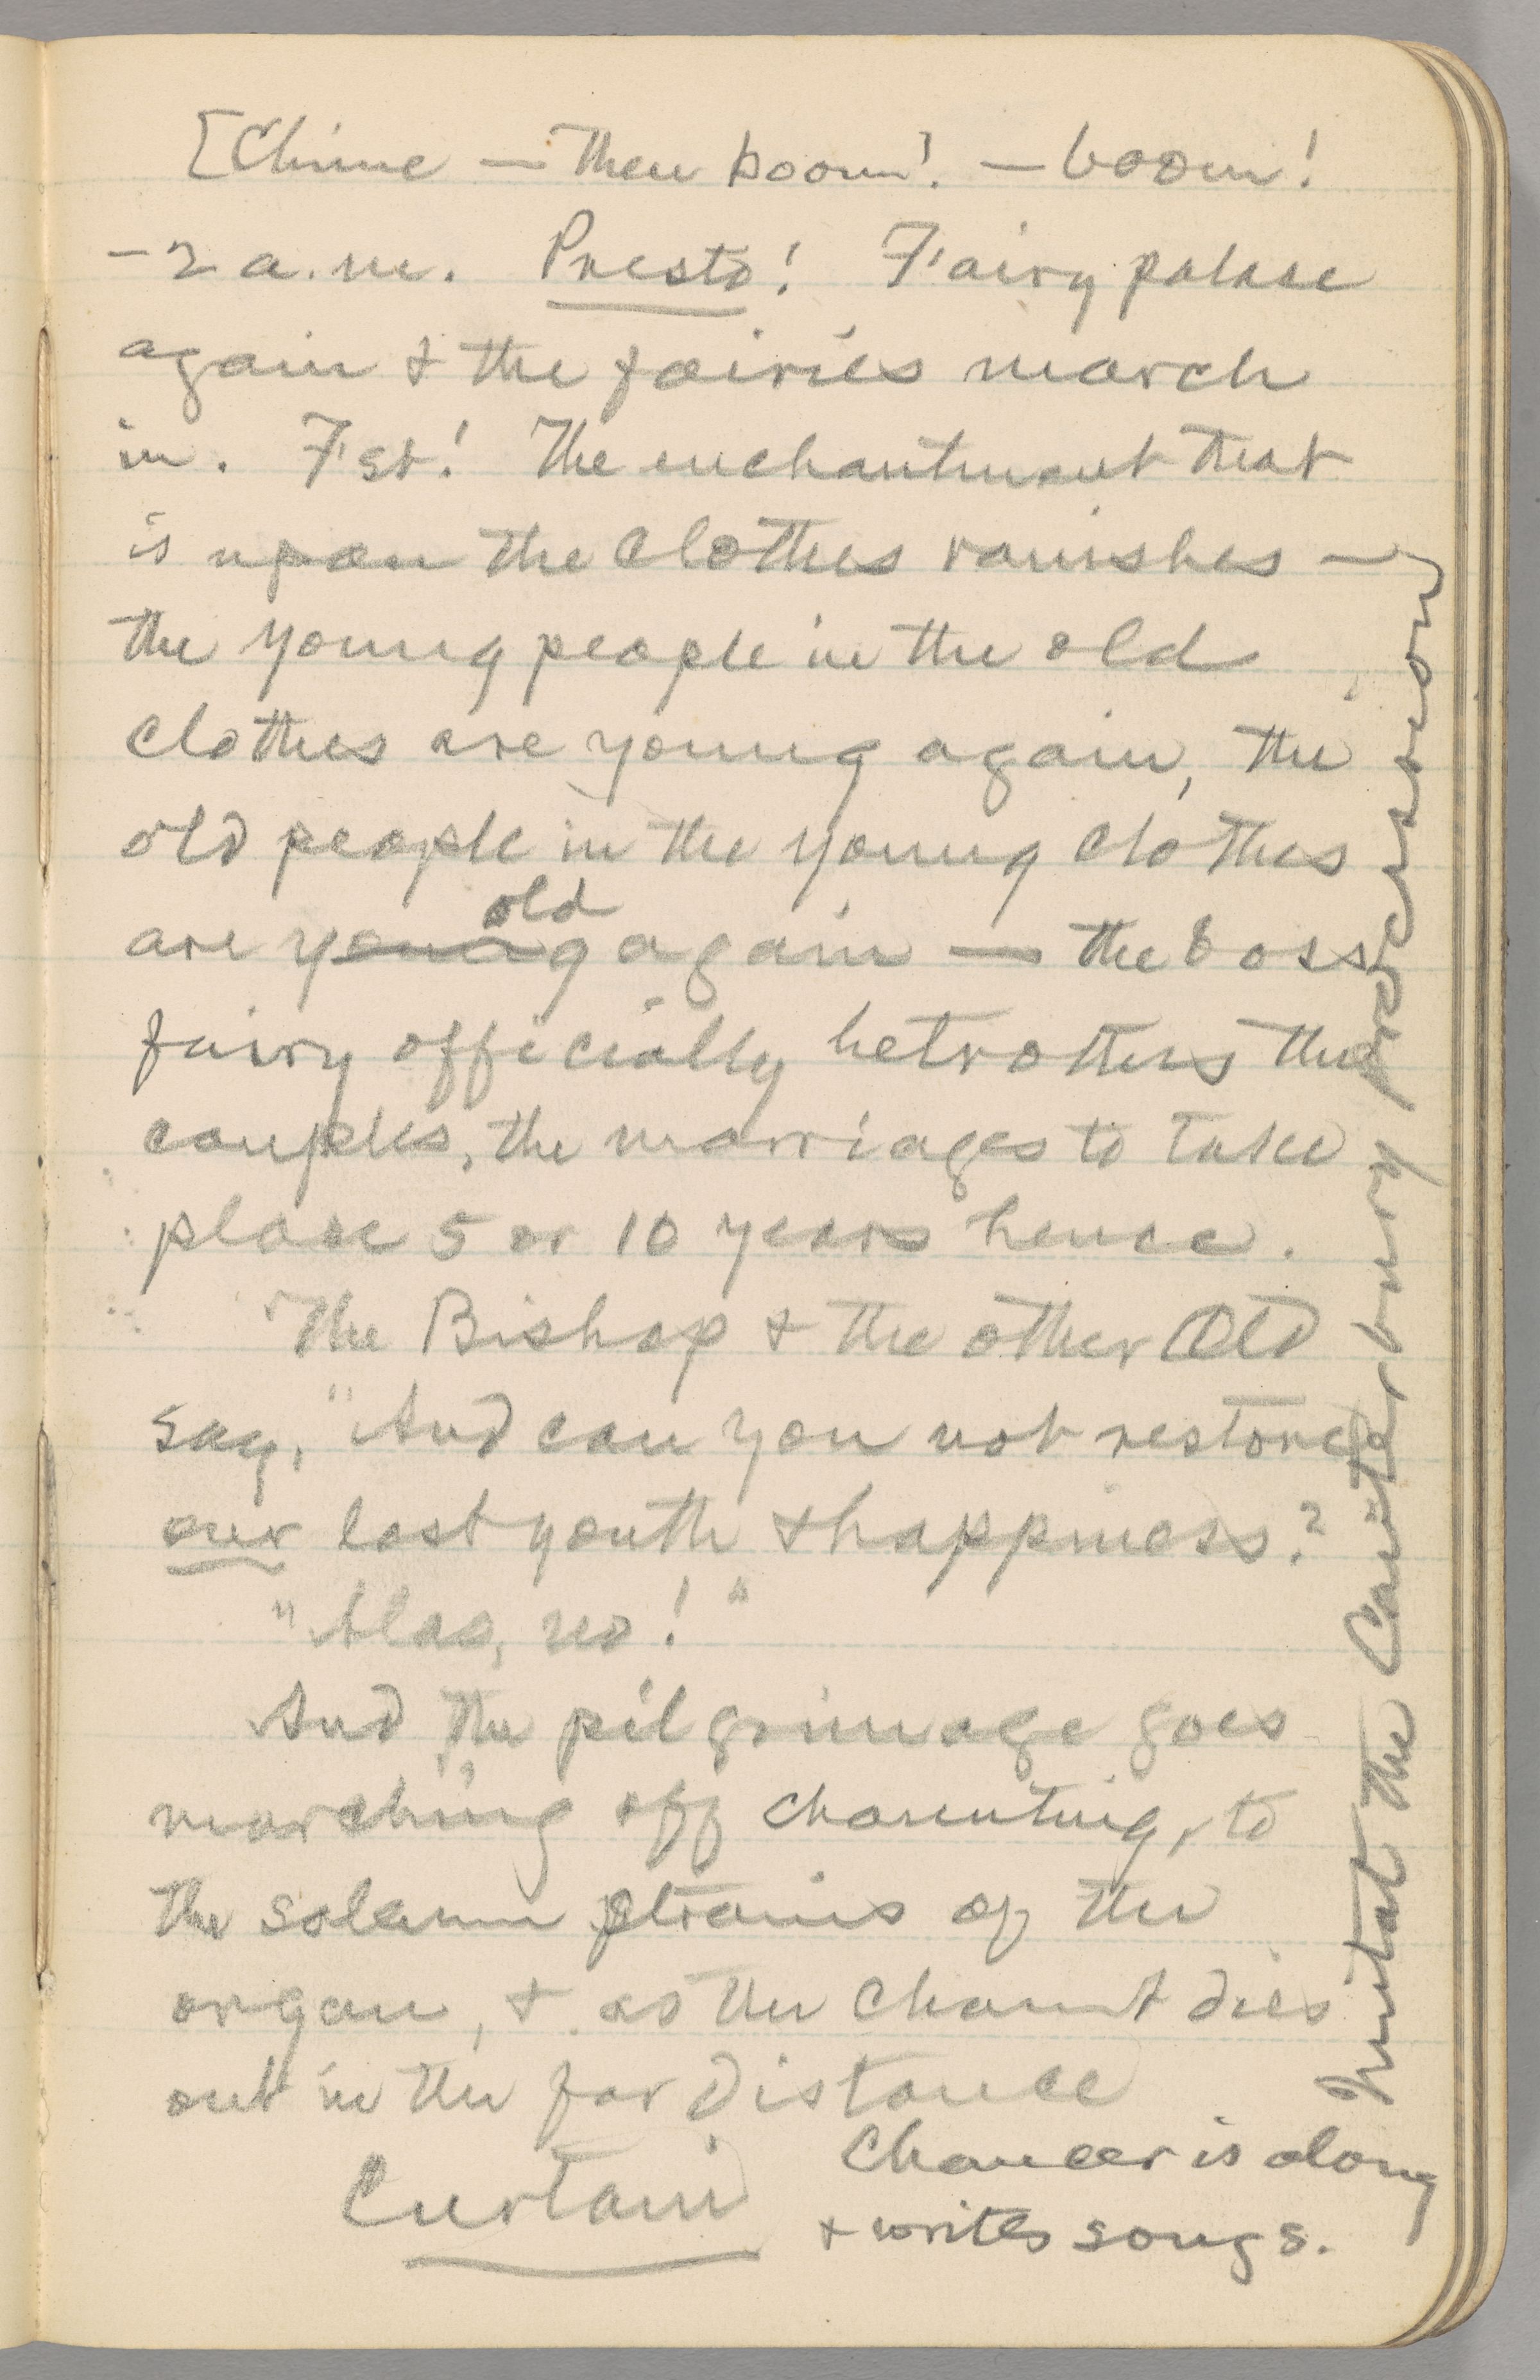 [Chime — then boom! — boom!
— 2 a.m. Presto! Fairy palace
again & the fairies march
in. Fst! The enchantment that
is upon the clothes vanishes —
the young people in the old
clothes are young again, the
old people in the young clothes
old
are young again — the boss
fairy officially betrothes the
couples, the marriages to take
place 5 or 10 years hence.
The Bishop & the other Old
say, "And can you not restore
our lost youth & happiness?
"Alas, no!"
And the pilgrimage goes
marching off chaunting, to
the solemn strains of the
organ, & as the chaunt dies
out in the far distance
Curtain
Chaucer is along
& writes songs.
Imitate the Canterbury procession